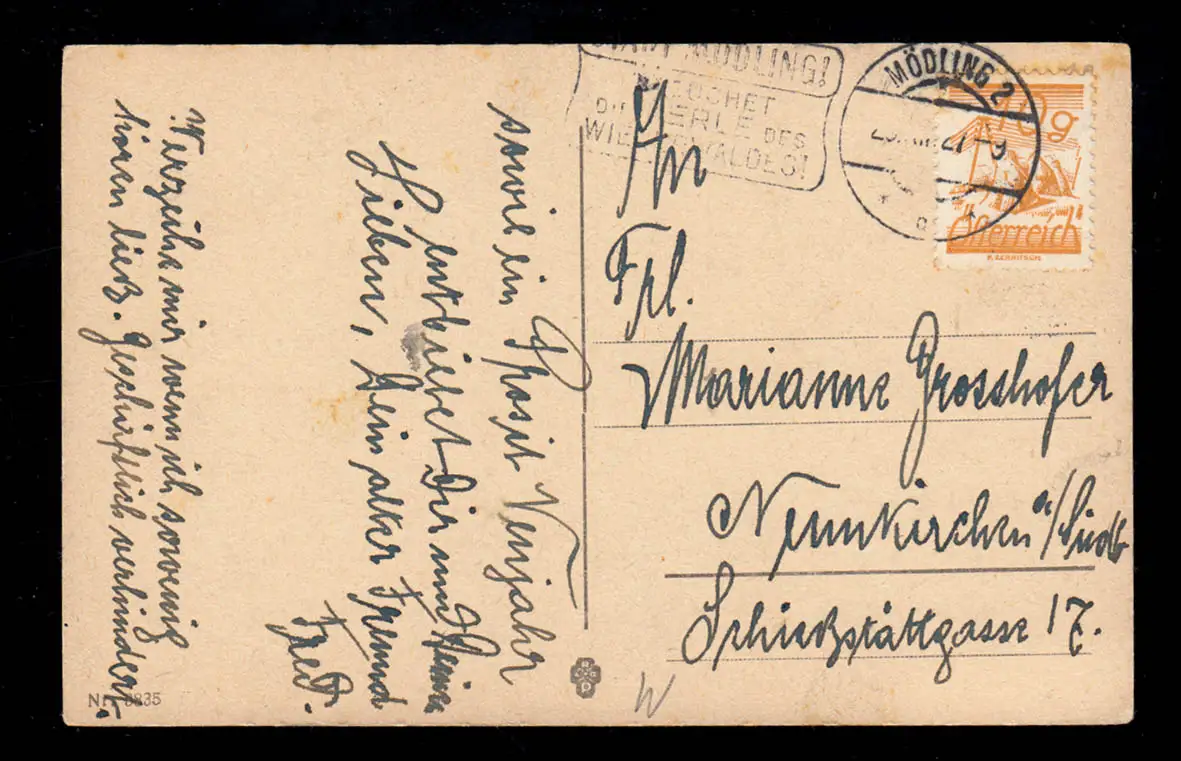 STADT MÖDLING!
BESUCHET
DIE PERLE DES
WIENERWALDES!
MÖDLING 2
10g
Österreich
An
Frl.
Marianne Grosshofer
Neunkirchen a/Südb
Schießstättgasse 17.
sowie ein Prosit Neujahr
entbietet Dir und Deinen
Lieben, Dein alter Freund
Fred.
Verzeihe mir wenn ich sowenig
hören ließ. Geschäftlich verhindert.
Nr. 3835
W